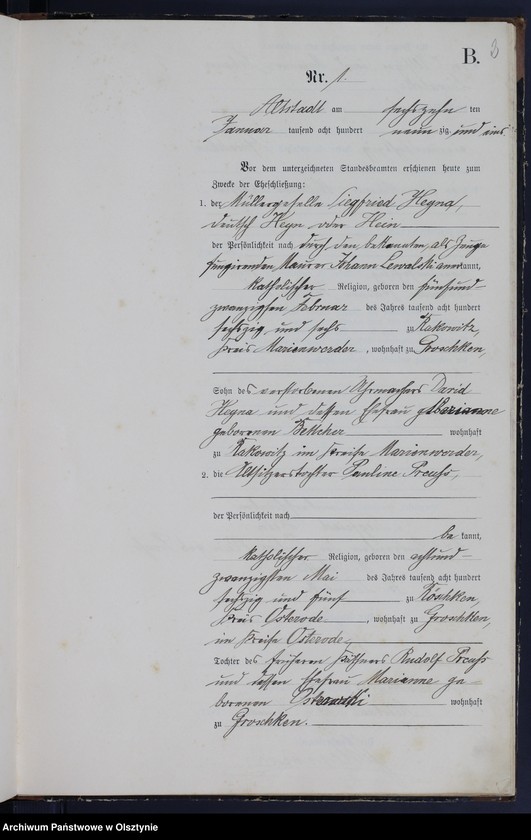 B. 3
Nr. 1.
Altstadt am sechszehn ten
Januar tausend acht hundert neun zig und eins.
Vor dem unterzeichneten Standesbeamten erschienen heute zum
Zwecke der Eheschließung:
1. der Müllergeselle Siegfried Heyna,
deutsch Heyn oder Hein
der Persönlichkeit nach durch den bekannten, als Zeuge
fungirenden Maurer Johann Lewalski anerkannt,
katholischer Religion, geboren den fünfund
zwanzigsten Februar des Jahres tausend acht hundert
sechszig und sechs zu Rakowitz,
Kreis Marienwerder, wohnhaft zu Groschken,
Sohn des verstorbenen Uhrmachers David
Heyna und dessen Ehefrau
geborenen Bettcher wohnhaft
zu Rakowitz im Kreise Marienwerder,
2. die Altsitzerstochter Pauline Preuss,
der Persönlichkeit nach
be kannt,
katholischer Religion, geboren den achtund-
zwanzigsten Mai des Jahres tausend acht hundert
sechszig und fünf zu Röschken,
Kreis Osterode, wohnhaft zu Groschken,
im Kreise Osterode,
Tochter des früheren Käthners Rudolf Preuss
und dessen Ehefrau Marianne ge-
borenen wohnhaft
zu Groschken.
Archiwum Państwowe w Olsztynie